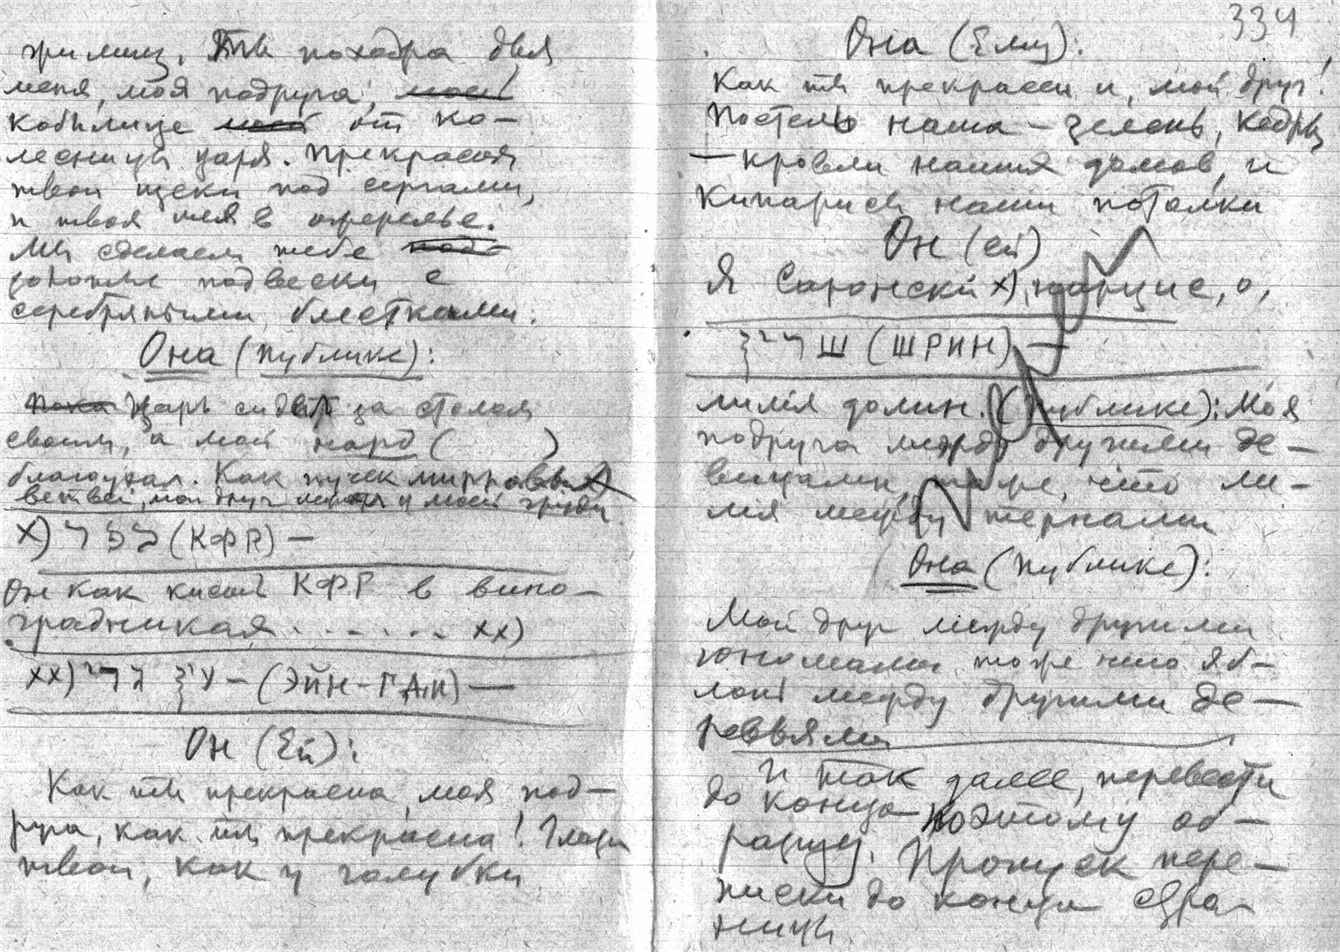 Ты похожа для
меня, моя подруга, моей
кобылице моей от ко-
лесницы царя. Прекрасны
твои щеки под серьгами,
и твоя шея в ожерелье.
Мы сделаем тебе под-
золотые подвески с
серебряными блестками.
Она (публике):
Пока Царь сидел за столом
своим, а мой нард ( )
благоухал. Как пучек мирровых
ветвей, мой друг у моей груди
х) (КФР) —
Он как кисть КФР в вино-
градниках . . - . . . хх)
хх) – (ЭЙН-ГДИ) —
Он (Ей):
Как ты прекрасна, моя под-
руга, как ты прекрасна! Глаза
твои, как у голубки
334
Она (Ему):
Как ты прекрасен и, мой друг!
Постель наша – зелень, кедры
– кровли наших домов, и
кипарисы наши потолки
Он (ей)
Я Саронский х) нарцис, о,
Ш (ШРИН) —
лилия долин. (Публике): Моя
подруга между другими де-
вицами, то же, что ли-
лия между тернами
Она (публике):
Мой друг между другими
юношами то же что яб-
лонь между другими де-
ревьями
И так далее, перевести
до конца поэтому об-
разцу. Пропуск пере-
писки до конца стра-
ницы